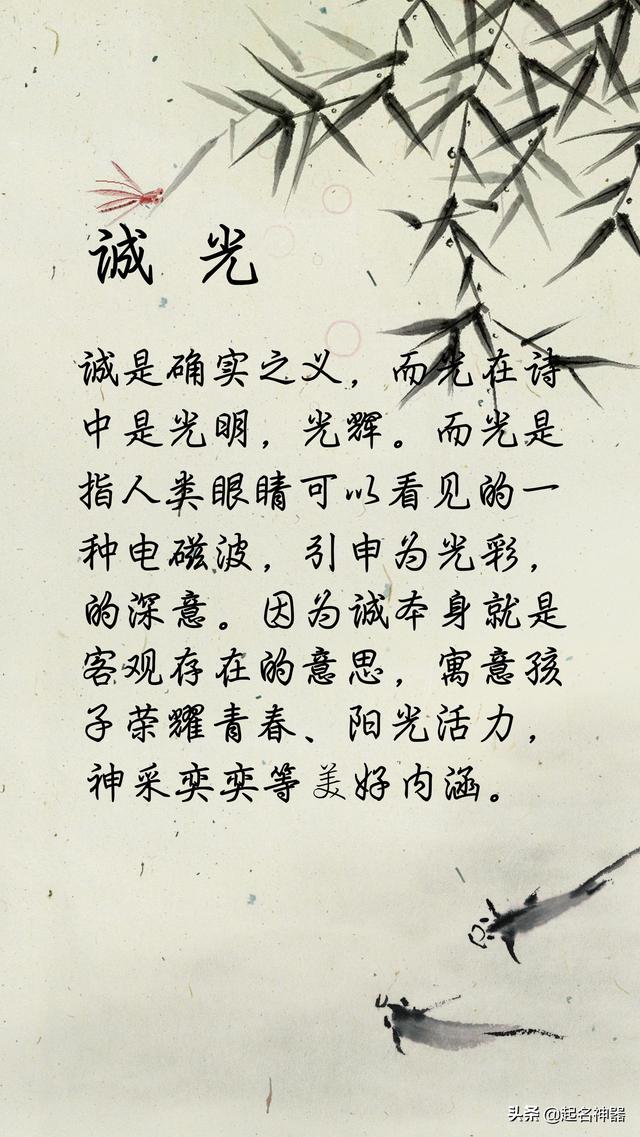 诚 光
诚是确实之义，而光在诗
中是光明，光辉。而光是
指人类眼睛可以看见的一
种电磁波，引申为光彩，
的深意。因为诚本身就是
客观存在的意思，寓意孩
子荣耀青春、阳光活力，
神采奕奕等美好内涵。
头条 @起名神器